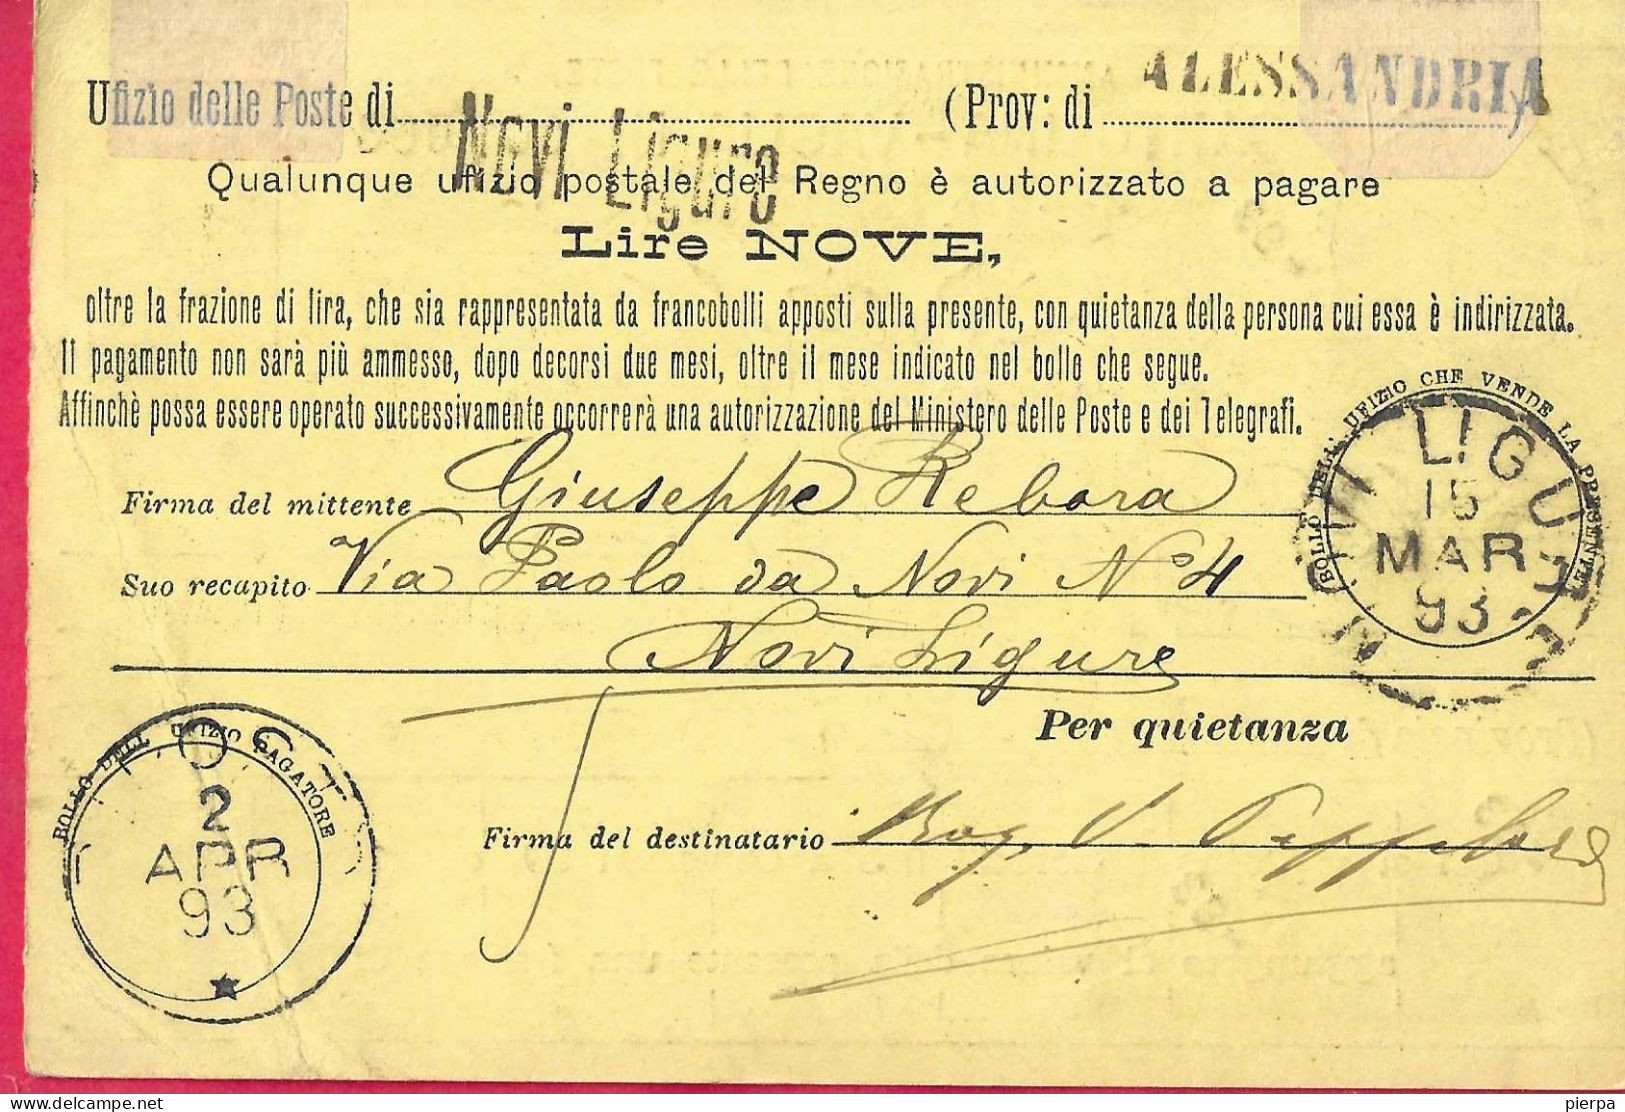 Ufizio delle Poste di Novi Ligure (Prov: di ALESSANDRIA)
Qualunque ufizio postale del Regno è autorizzato a pagare
Lire NOVE,
oltre la frazione di lira, che sia rappresentata da francobolli apposti sulla presente, con quietanza della persona cui essa è indirizzata.
Il pagamento non sarà più ammesso, dopo decorsi due mesi, oltre il mese indicato nel bollo che segue.
Affinchè possa essere operato successivamente occorrerà una autorizzazione del Ministero delle Poste e dei Telegrafi.
BOLLO DELL' UFIZIO CHE VENDE LA PRESENTE
NOVI LIGURE
15
MAR
93
Firma del mittente Giuseppe Rebora
Suo recapito Via Paolo da Novi Nº 4
Novi Ligure
Per quietanza
BOLLO DELL UFIZIO PAGATORE
2
APR
93
Firma del destinatario Rag. V.
pierpa